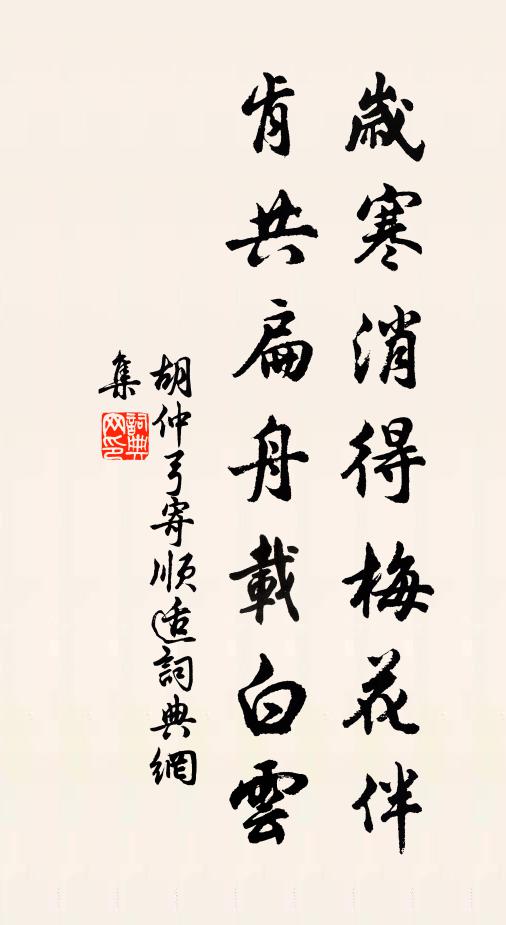 歲寒消得梅花伴
肯共扁舟載白雲
胡仲弓寄順適詞典網
集
詞典網印